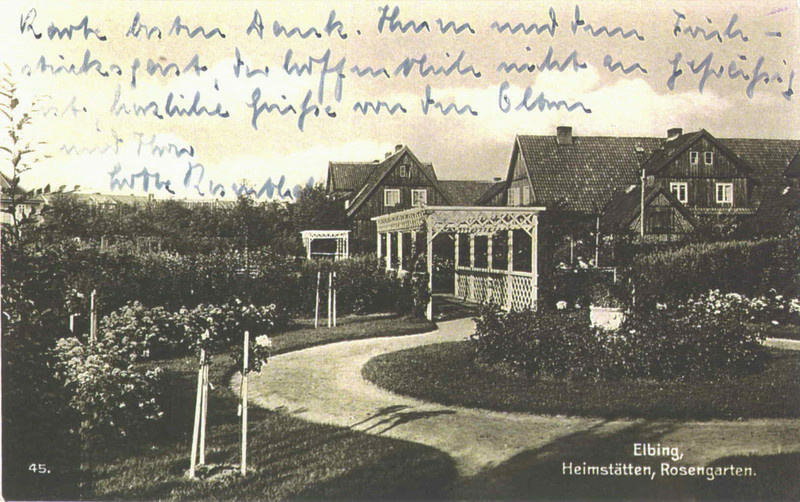 Karte besten Dank. Ihnen und dem Früh-
stücksgeist, der hoffentlich nicht so gefräßig
ist, herzliche Grüße von den Eltern
und Ihrer
Lotte
45.
Elbing,
Heimstätten, Rosengarten.